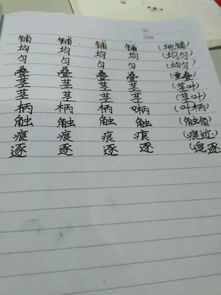 铺 铺 铺 铺 (地铺)
均 均 均 均 (均匀)
匀 匀 匀 匀 (均匀)
叠 叠 叠 叠 (重叠)
茎 茎 茎 茎 (茎叶)
茎 茎 茎 茎 (茎叶)
柄 柄 柄 柄 (叶柄)
触 触 触 触 (触角)
痕 痕 痕 痕 (痕迹)
逐 逐 逐 逐 (追逐)